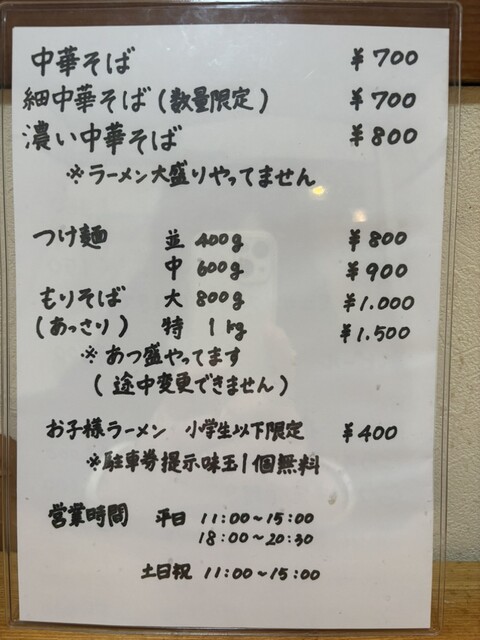 中華そば ¥700
細中華そば(数量限定) ¥700
濃い中華そば ¥800
※ラーメン大盛りやってません
つけ麺 並 400g ¥800
中 600g ¥900
もりそば 大 800g ¥1.000
(あっさり) 特 1kg ¥1.500
※あつ盛やってます
(途中変更できません)
お子様ラーメン 小学生以下限定 ¥400
※駐車券提示味玉1個無料
営業時間 平日 11:00~15:00
18:00~20:30
土日祝 11:00~15:00